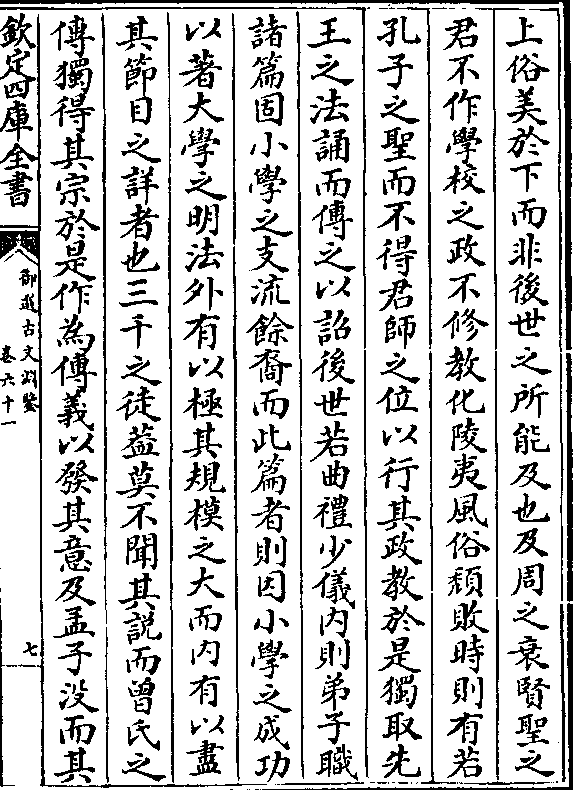 上俗美於下而非後世之所能及也及周之衰賢聖之
君不作學校之政不修教化陵夷風俗頽敗時則有若
孔子之聖而不得君師之位以行其政教於是獨取先
王之法誦而傳之以詔後世若曲禮少儀內則弟子職
諸篇固小學之支流餘裔而此篇者則因小學之成功
以著大學之明法外有以極其規模之大而內有以盡
其節目之詳者也三千之徒葢莫不聞其説而曾氏之
傳獨得其宗於是作為傳義以發其意及孟子没而其
欽定四庫全書
御選古文淵鑒
卷六十一
七